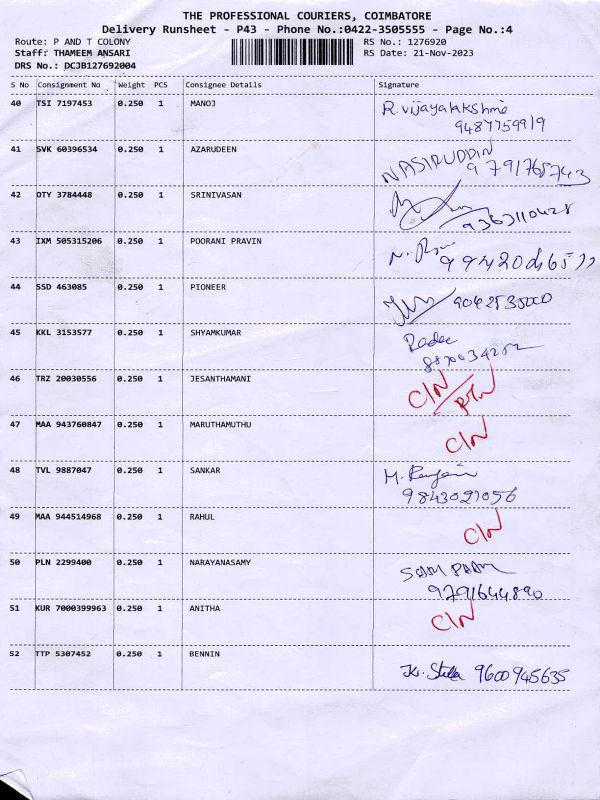 THE PROFESSIONAL COURIERS, COIMBATORE
Delivery Runsheet - P43 - Phone No.:0422-3505555 - Page No.:4
Route: P AND T COLONY RS No.: 1276920
Staff: THAMEEM ANSARI RS Date: 21-Nov-2023
DRS No.: DCJB127692004
S No Consignment No Weight PCS Consignee Details Signature
40 TSI 7197453 0.250 1 MANOJ R. Vijayalakshmi
9487759919
41 SVK 60396534 0.250 1 AZARUDEEN NASIRUDDIN
9791765743
42 OTY 3784448 0.250 1 SRINIVASAN
9363110428
43 IXM 505315206 0.250 1 POORANI PRAVIN
44 SSD 463085 0.250 1 PIONEER
45 KKL 3153577 0.250 1 SHYAMKUMAR
8870034252
46 TRZ 20030556 0.250 1 JESANTHAMANI C/N
47 MAA 943760847 0.250 1 MARUTHAMUTHU C/N
48 TVL 9887047 0.250 1 SANKAR
9843021056
49 MAA 944514968 0.250 1 RAHUL C/N
50 PLN 2299400 0.250 1 NARAYANASAMY
9791644890
51 KUR 7000399963 0.250 1 ANITHA C/N
52 TTP 5307452 0.250 1 BENNIN 9600945635